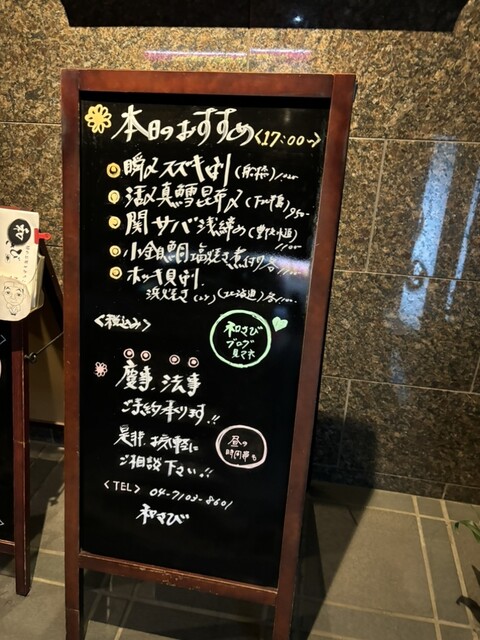 本日のおすすめ<17:00〜>
瞬〆スズキ刺
活〆真鯛昆布〆 950-
関サバ浅締め
小金目鯛 塩焼き 煮付け 各
ホッキ貝刺
浜焼き (北海道) 各
<税込み>
和さび
ブログ
見てネ
慶事 法事
ご予約承ります!!
是非お気軽に
ご相談下さい!!
昼の
時間帯も
<TEL> 04-7103-8601
和さび